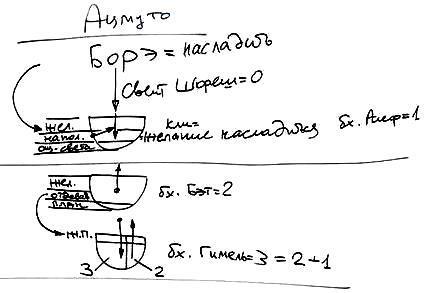 Ацмуто
Борэ = насладить
Свет Шореш = 0
жел.
напол.
ощ. света
кли =
= желание насладиться
бх. Алеф = 1
жел.
отдавать
бх. Бэт = 2
ж.п.
3
2
бх. Гимель = 3 = 2+1